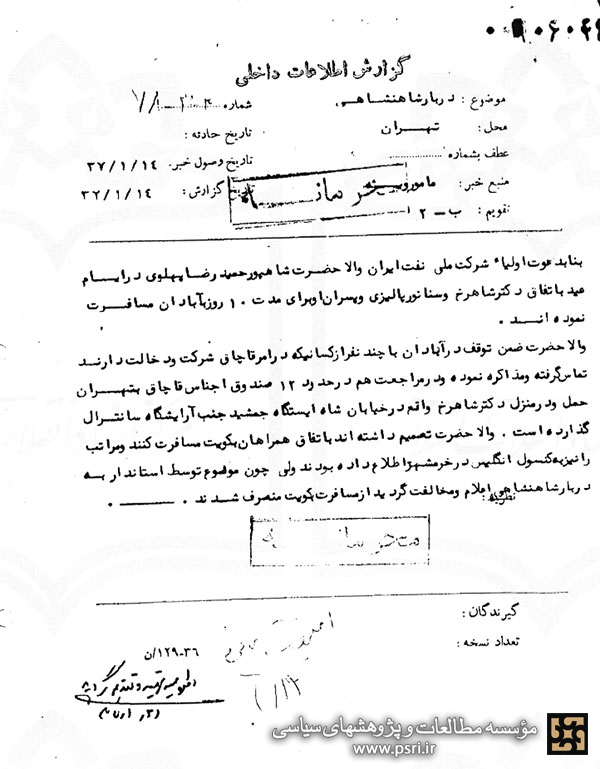 گزارش اطلاعات داخلی
موضوع : دربار شاهنشاهی
شماره
محل : تهران
تاریخ حادثه :
عطف بشماره
تاریخ وصول خبر : ۳۷/۱/۱۴
منبع خبر : مامور
محرمانه
تاریخ گزارش : ۳۷/۱/۱۴
تقویم : ب - ۲
بنا بدعوت اولیاء شرکت ملی نفت ایران والاحضرت شاهپور حمید رضا پهلوی در ایام
عید باتفاق دکتر شاهرخ وسناتور پالیزی وپسران او برای مدت ۱۰ روز بآبادان مسافرت
نموده اند .
والاحضرت ضمن توقف در آبادان با چند نفر از کسانیکه در امر قاچاق شرکت ودخالت دارند
تماس گرفته ومذاکره نموده ودر مراجعت هم در حدود ۱۲ صندوق اجناس قاچاق بتهران
حمل ودر منزل دکتر شاهرخ واقع در خیابان شاه ایستگاه جمشید جنب آرایشگاه سانترال
گذارده است . والاحضرت تصمیم داشته اند باتفاق همراهان بکویت مسافرت کنند ومراتب
را نیز به کنسول انگلیس در خرمشهر اطلاع داده بودند ولی چون موضوع توسط استاندار به
دربار شاهنشاهی اعلام ومخالفت گردید از مسافرت بکویت منصرف شدند .
نظریه :
محرمانه
گیرندگان :
تعداد نسخه :
۱۲۹-۳۶/ن
مؤسسه مطالعات و پژوهشهای سیاسی
www.psri.ir